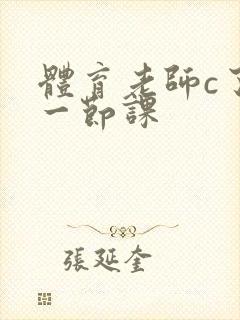 體育老師c了
一節課
張延奎